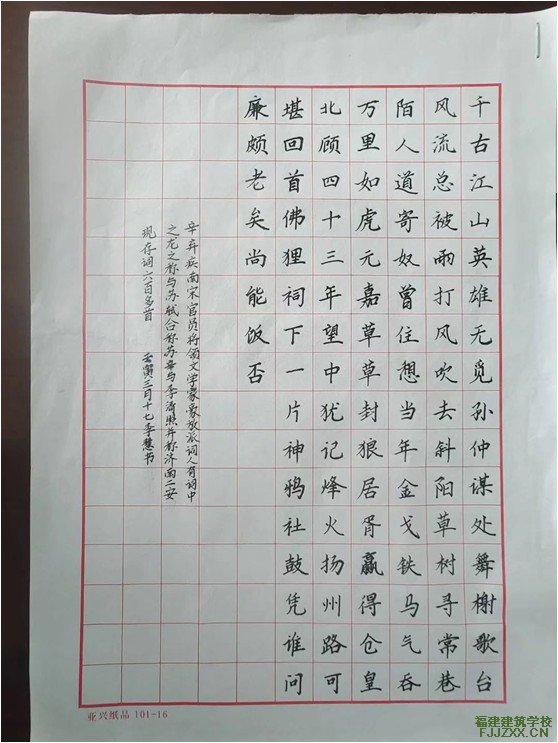 千古江山英雄无觅孙仲谋处舞榭歌台
风流总被雨打风吹去斜阳草树寻常巷
陌人道寄奴曾住想当年金戈铁马气吞
万里如虎元嘉草草封狼居胥赢得仓皇
北顾四十三年望中犹记烽火扬州路可
堪回首佛狸祠下一片神鸦社鼓凭谁问
廉颇老矣尚能饭否
辛弃疾南宋官员将领文学家豪放派词人有词中
之龙之称与苏轼合称苏辛与李清照并称济南二安
现存词六百多首 壬寅三月十七李慧书
亚兴纸品 101-16
福建建筑学校
FJJZXX.CN